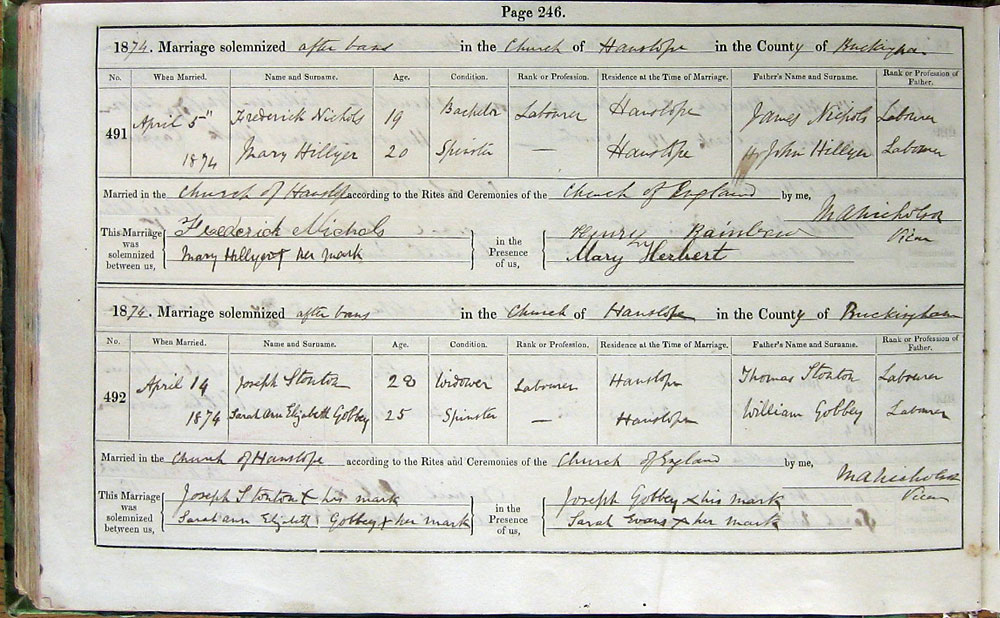 Page 246.
1874. Marriage solemnized after bans in the Church of Hanslope in the County of Buckingham
No. When Married. Name and Surname. Age. Condition. Rank or Profession. Residence at the Time of Marriage. Father's Name and Surname. Rank or Profession of Father.
491 April 5" Frederick Nichols 19 Bachelor Labourer Hanslope James Nichols Labourer
1874 Mary Hillyer 20 Spinster — Hanslope John Hillyer Labourer
Married in the Church of Hanslope according to the Rites and Ceremonies of the Church of England by me,
This Marriage was solemnized between us, Frederick Nichols in the Presence of us, Henry Rainbow Vicar
Mary Hillyer + her mark Mary Herbert
1874. Marriage solemnized after bans in the Church of Hanslope in the County of Buckingham
No. When Married. Name and Surname. Age. Condition. Rank or Profession. Residence at the Time of Marriage. Father's Name and Surname. Rank or Profession of Father.
492 April 14 Joseph Stonton 28 Widower Labourer Hanslope Thomas Stonton Labourer
1874 Sarah Ann Elizabeth Gobbey 25 Spinster — Hanslope William Gobbey Labourer
Married in the Church of Hanslope according to the Rites and Ceremonies of the Church of England by me,
This Marriage was solemnized between us, Joseph Stonton x his mark in the Presence of us, Joseph Gobbey x his mark Vicar
Sarah Ann Elizabeth Gobbey x her mark Sarah Evans x her mark